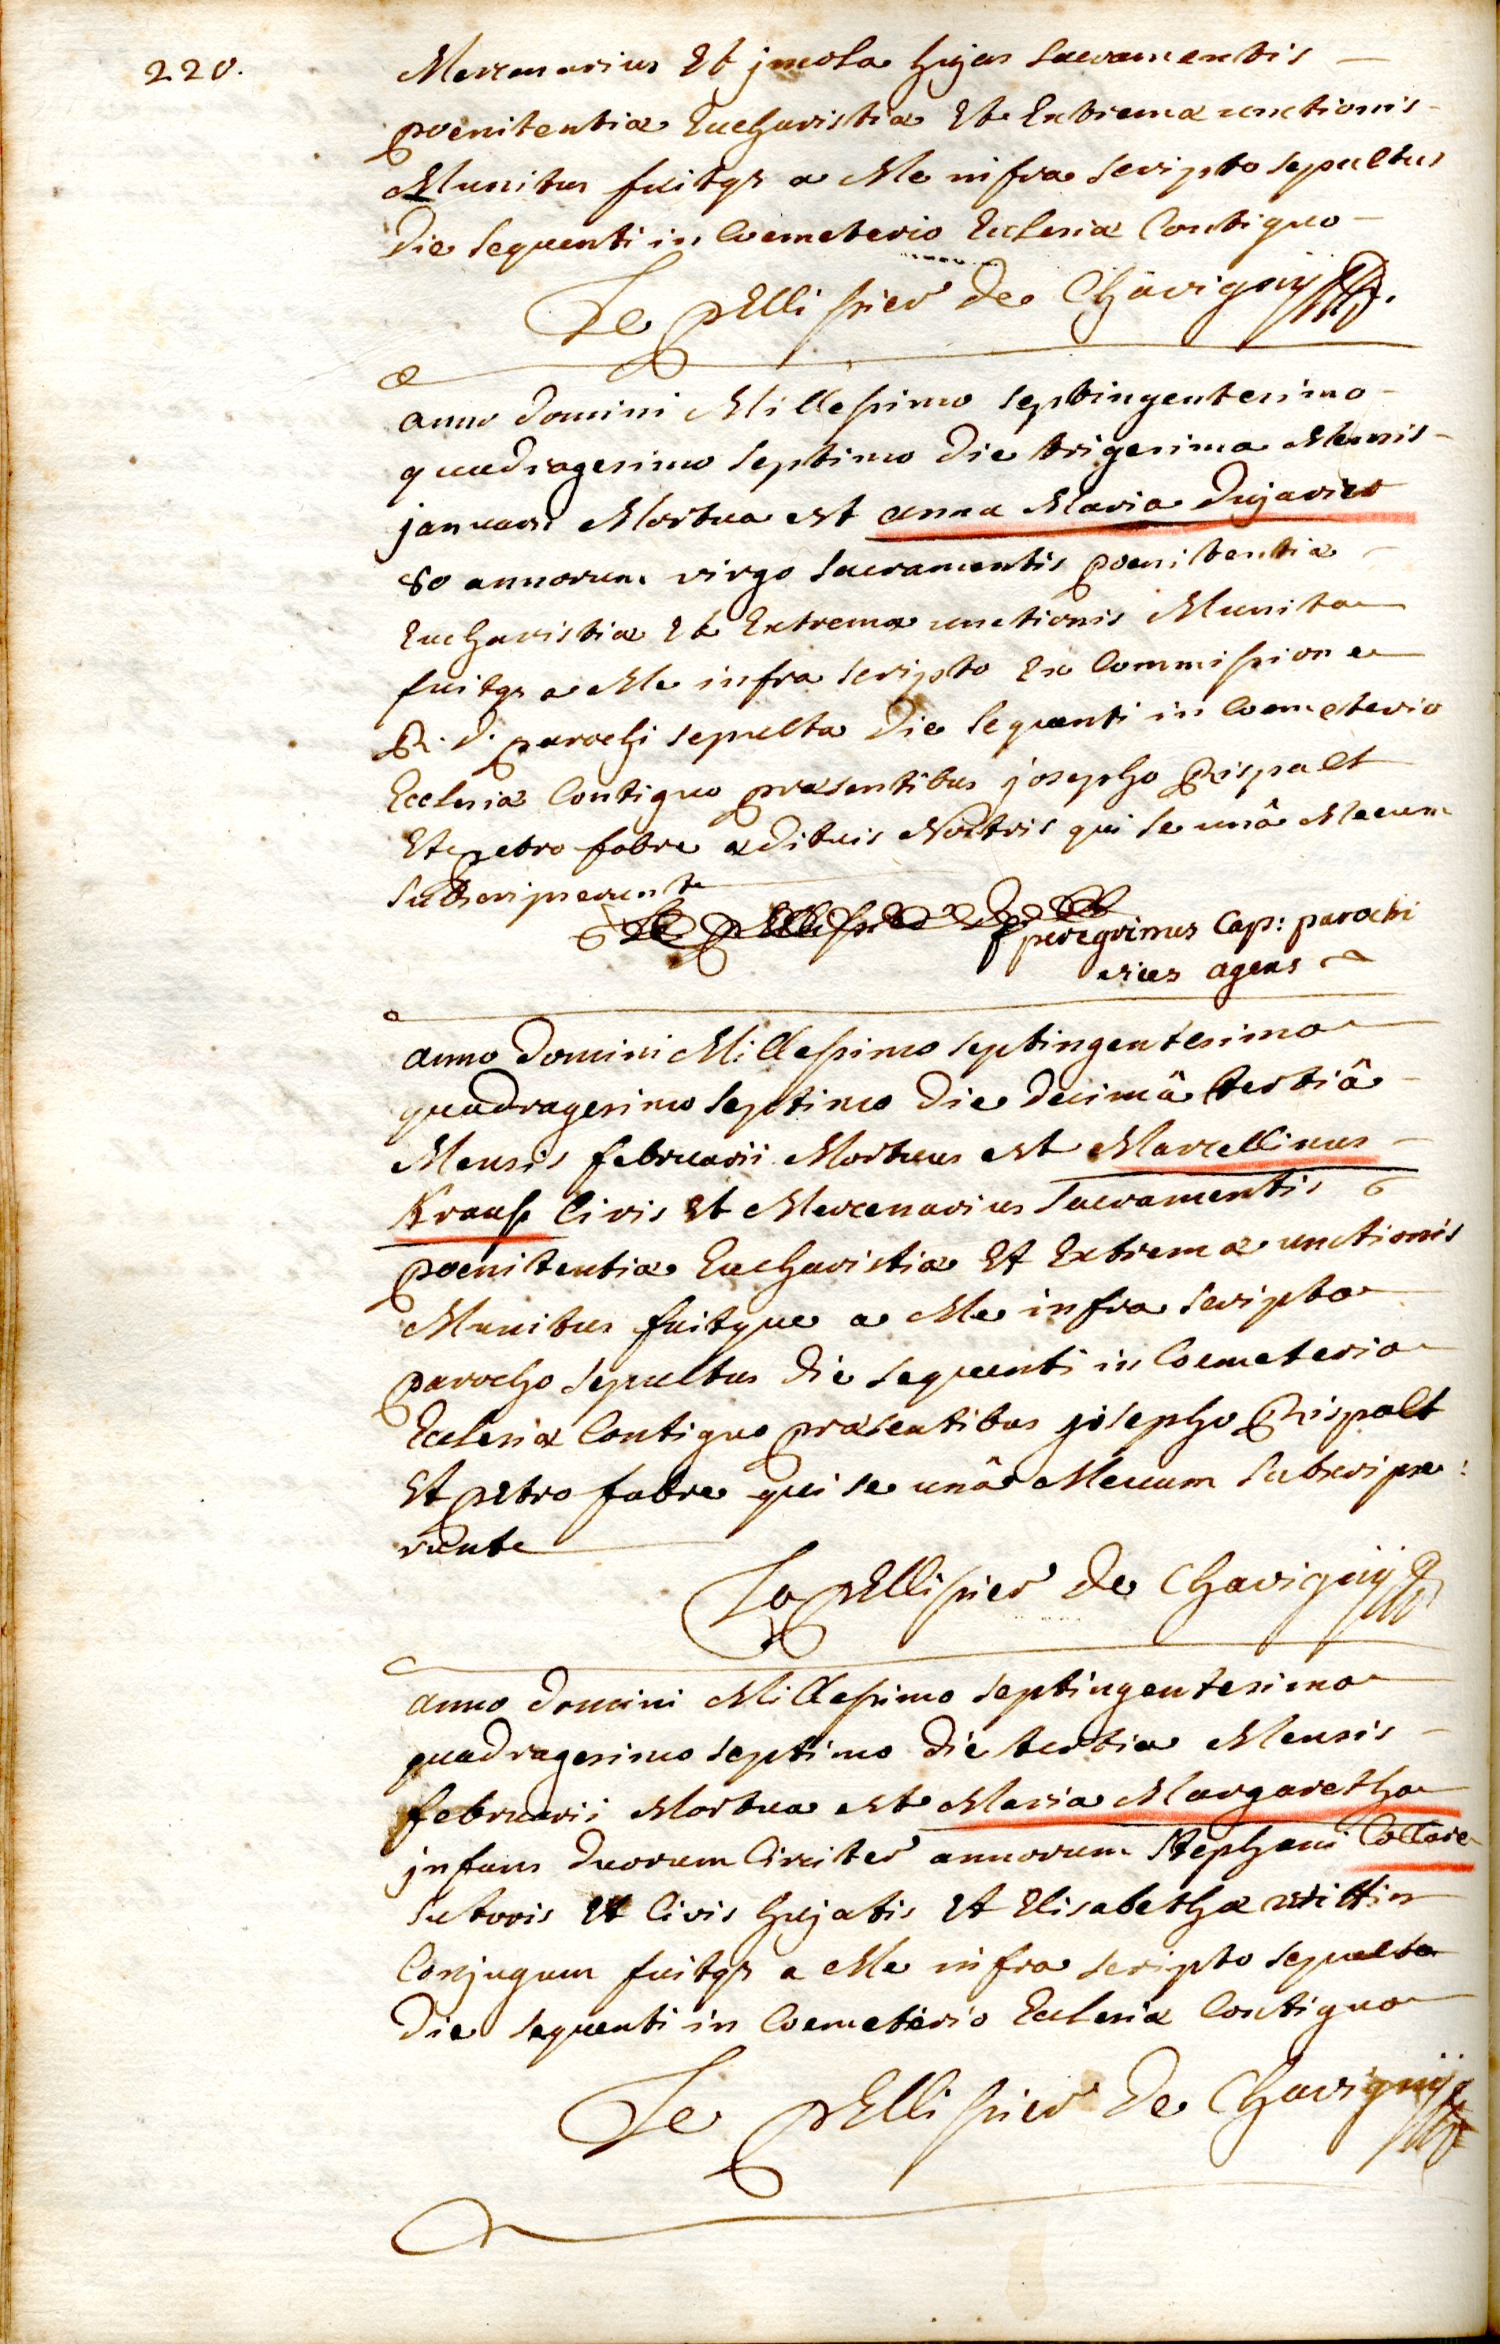 220.
Mercenarius Et jncola hujas sacramentis
poenitentiæ Eucharistiæ Et Extremæ unctionis
Munitus fuitqz a Me infra scripto sepultus
die sequenti in Coemeterio Ecclesiæ Contiguo
Le pEllissier de Chavignÿ
anno domini Millessimo septingentesimo
quadragesimo septimo die trigesima Mensis
januarii Mortua est anna Maria Dujardin
80 annorum virgo sacramentis poenitentiæ
Eucharistiæ Et Extremæ unctionis Munita
fuitqz a Me infra scripto Ex Commissione
R. d. parochi sepulta die sequenti in Coemeterio
Ecclesiæ Contiguo præsentibus josepho Rispalt
Et petro fabre ædituis Nostris qui se unâ Mecum
subscripserunt
peregrinus Cap: parochi
vices agens
anno domini Millessimo septingentesimo
quadragesimo septimo die decimâ tertiâ
Mensis februarii Mortuus est Marcellinus
Krauss Civis Et Mercenarius sacramentis
poenitentiæ Eucharistiæ Et Extremæ unctionis
Munitus fuitque a Me infra scripto
parocho sepultus die sequenti in Coemeterio
Ecclesiæ Contiguo præsentibus josepho Rispalt
Et petro fabre qui se unâ Mecum subscripse:
runt
Le pEllissier de Chavignÿ
anno domini Millessimo septingentesimo
quadragesimo septimo die tertia Mensis
februarii Mortua est Maria Margaretha
jnfans duorum Circiter annorum Stephani Collare
sutoris Et Civis hujatis Et Elisabethæ wittin
Conjugum fuitqz a Me infra scripto sepulta
die sequenti in Coemeterio Ecclesiæ Contiguo
Le pEllissier de Chavignÿ